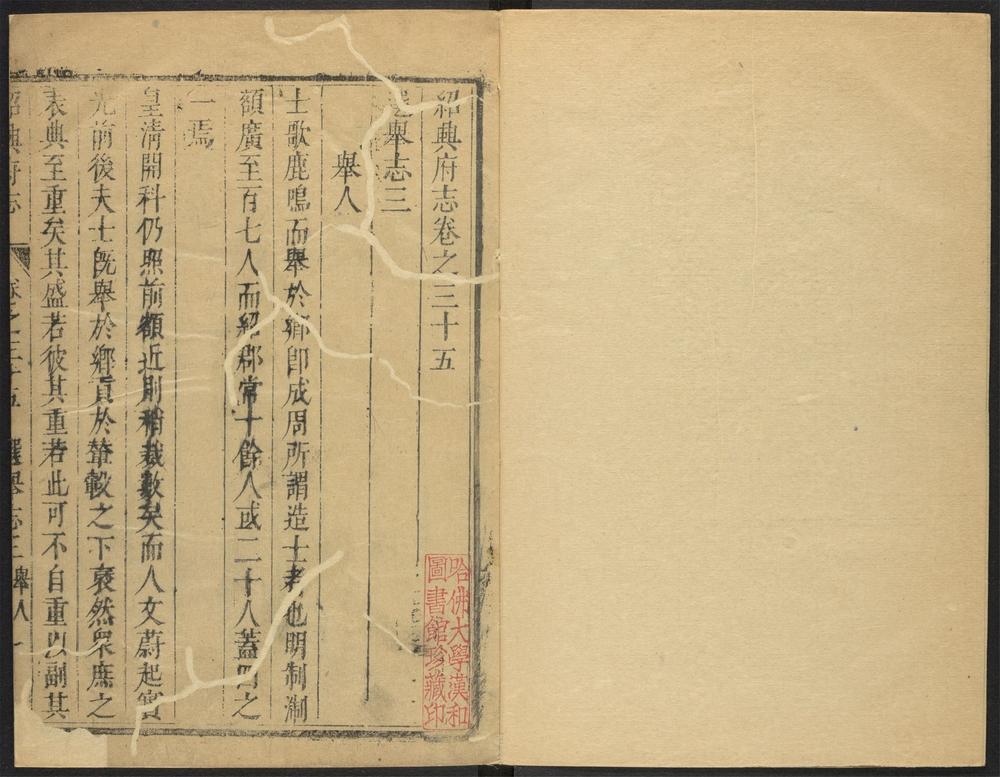 紹興府志卷之三十五
選舉志三
舉人
士歌鹿鳴而舉於鄉卽成周所謂造士者也明制淛
額廣至百七人而紹郡常十餘人或二十八蓋四之
一焉
皇淸開科仍照前額近則稍裁數矣而人文蔚起實
光前後夫士旣舉於鄉貢於輦轂之下裒然衆庶之
表典至重矣其盛若彼其重若此可不自重以副其
紹興府志 卷之三十五 選舉志三 舉人 一
哈佛大學漢和
圖書館珍藏印